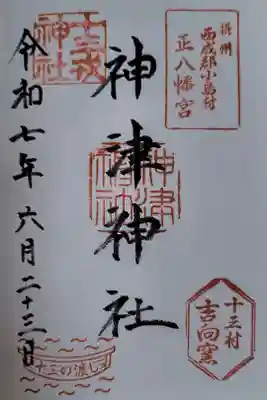 摂州
西成郡小島村
正八幡宮
十三戎
神社
神津神社
神津
神社
十三村
吉向窯
令和七年六月二十三日
十三の渡し